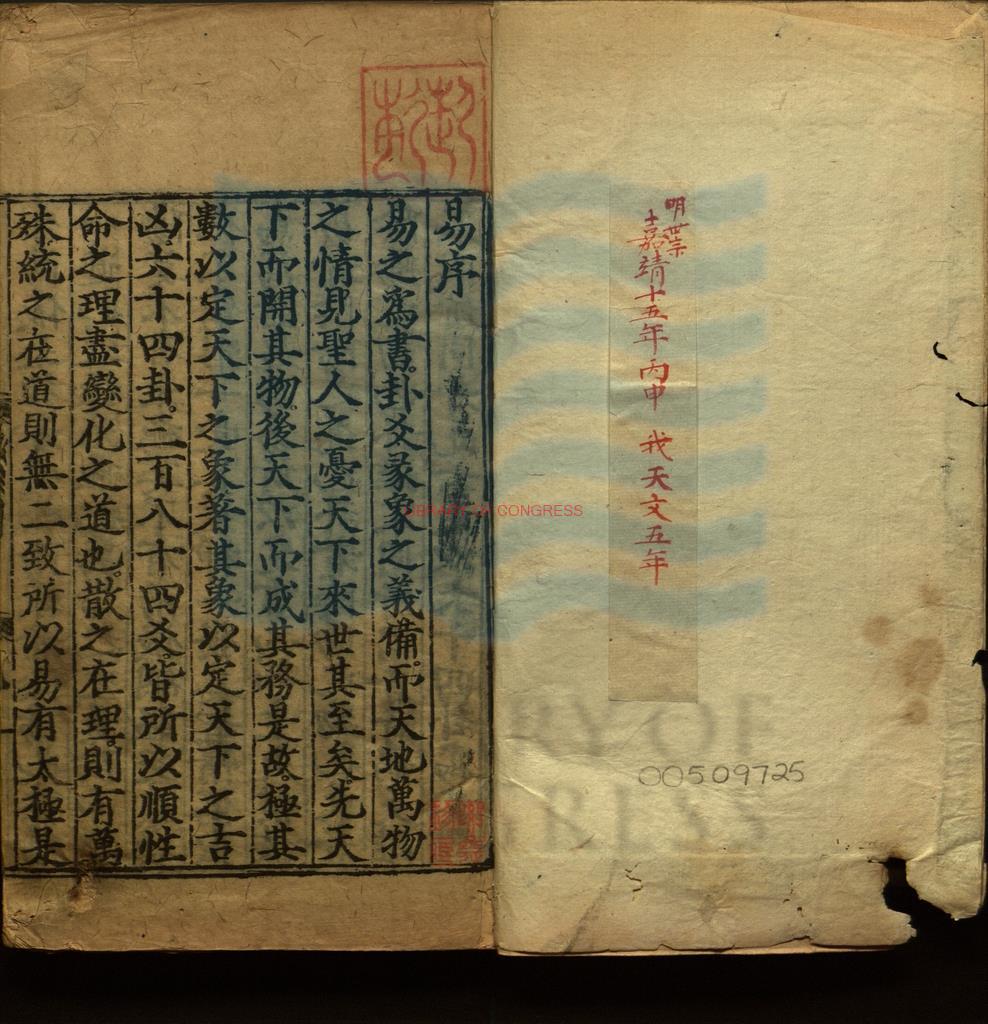 明世宗
嘉靖十五年丙申 我天文五年
00509725
LIBRARY OF CONGRESS
易序
易之爲書。卦爻彖象之義備。而天地萬物
之情見。聖人之憂天下來世其至矣。先天
下而開其物。後天下而成其務。是故。極其
數以定天下之象。著其象以定天下之吉
凶。六十四卦。三百八十四爻。皆所以順性
命之理。盡變化之道也。散之在理。則有萬
殊。統之在道則無二致。所以易有太極。是